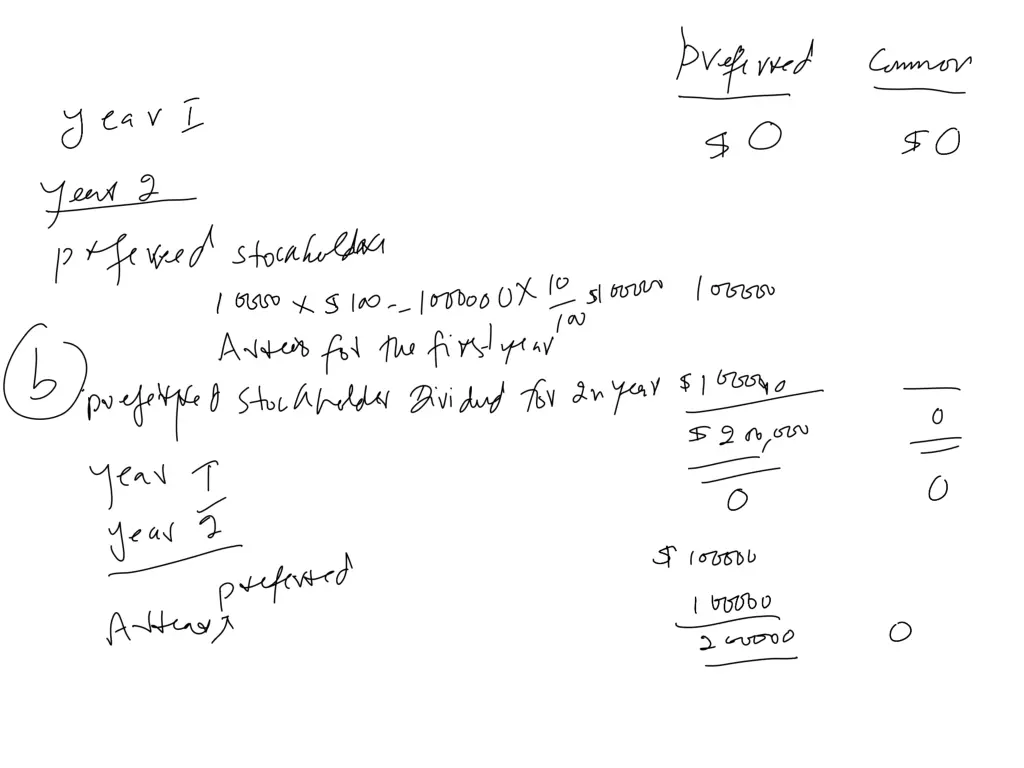 Preferred Common
year I $0 $0
year 2
preferred stockholder
10000 × $100 -- 1000000 × 10/100 $100000 100000
Arrears for the first year
b preferred stockholder Dividend for 2n year $100000
$200,000 0
year I 0 0
year 2
preferred $100000
Arrears 100000
200000 0